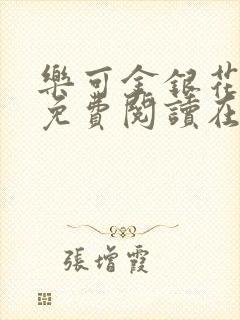 樂可金銀花
免費閱讀在
張增霞